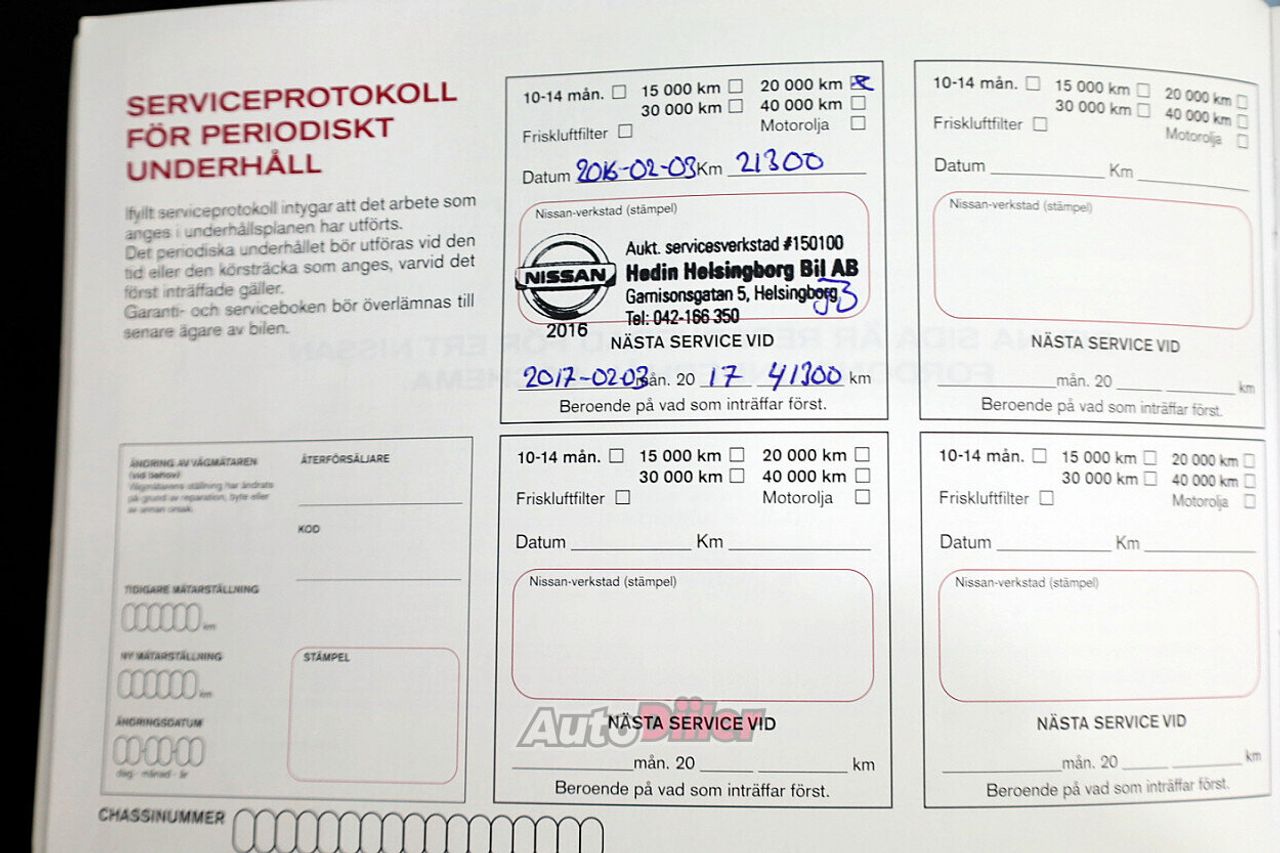 SERVICEPROTOKOLL
FÖR PERIODISKT
UNDERHÅLL
Ifyllt serviceprotokoll intygar att det arbete som
anges i underhållsplanen har utförts.
Det periodiska underhållet bör utföras vid den
tid eller den körsträcka som anges, varvid det
först inträffade gäller.
Garanti- och serviceboken bör överlämnas till
senare ägare av bilen.
10-14 mån. 15 000 km 20 000 km
30 000 km 40 000 km
Friskluftfilter Motorolja
Datum 2016-02-03 Km 21300
Nissan-verkstad (stämpel)
NISSAN
2016
Aukt. servicesverkstad #150100
Hedin Helsingborg Bil AB
Garnisonsgatan 5, Helsingborg
Tel: 042-166 350
NÄSTA SERVICE VID
2017-02-03 mån. 20 17 41300 km
Beroende på vad som inträffar först.
10-14 mån. 15 000 km 20 000 km
30 000 km 40 000 km
Friskluftfilter Motorolja
Datum Km
Nissan-verkstad (stämpel)
NÄSTA SERVICE VID
mån. 20 km
Beroende på vad som inträffar först.
ÄNDRING AV VÄGMÄTAREN
(vid behov)
Vägmätarens ställning har ändrats
på grund av reparation, byte eller
av annan orsak.
ÅTERFÖRSÄLJARE
KOD
TIDIGARE MÄTARSTÄLLNING
km
NY MÄTARSTÄLLNING
km
ÄNDRINGSDATUM
dag - månad - år
STÄMPEL
10-14 mån. 15 000 km 20 000 km
30 000 km 40 000 km
Friskluftfilter Motorolja
Datum Km
Nissan-verkstad (stämpel)
AutoDiiler
NÄSTA SERVICE VID
mån. 20 km
Beroende på vad som inträffar först.
10-14 mån. 15 000 km 20 000 km
30 000 km 40 000 km
Friskluftfilter Motorolja
Datum Km
Nissan-verkstad (stämpel)
NÄSTA SERVICE VID
mån. 20 km
Beroende på vad som inträffar först.
CHASSINUMMER